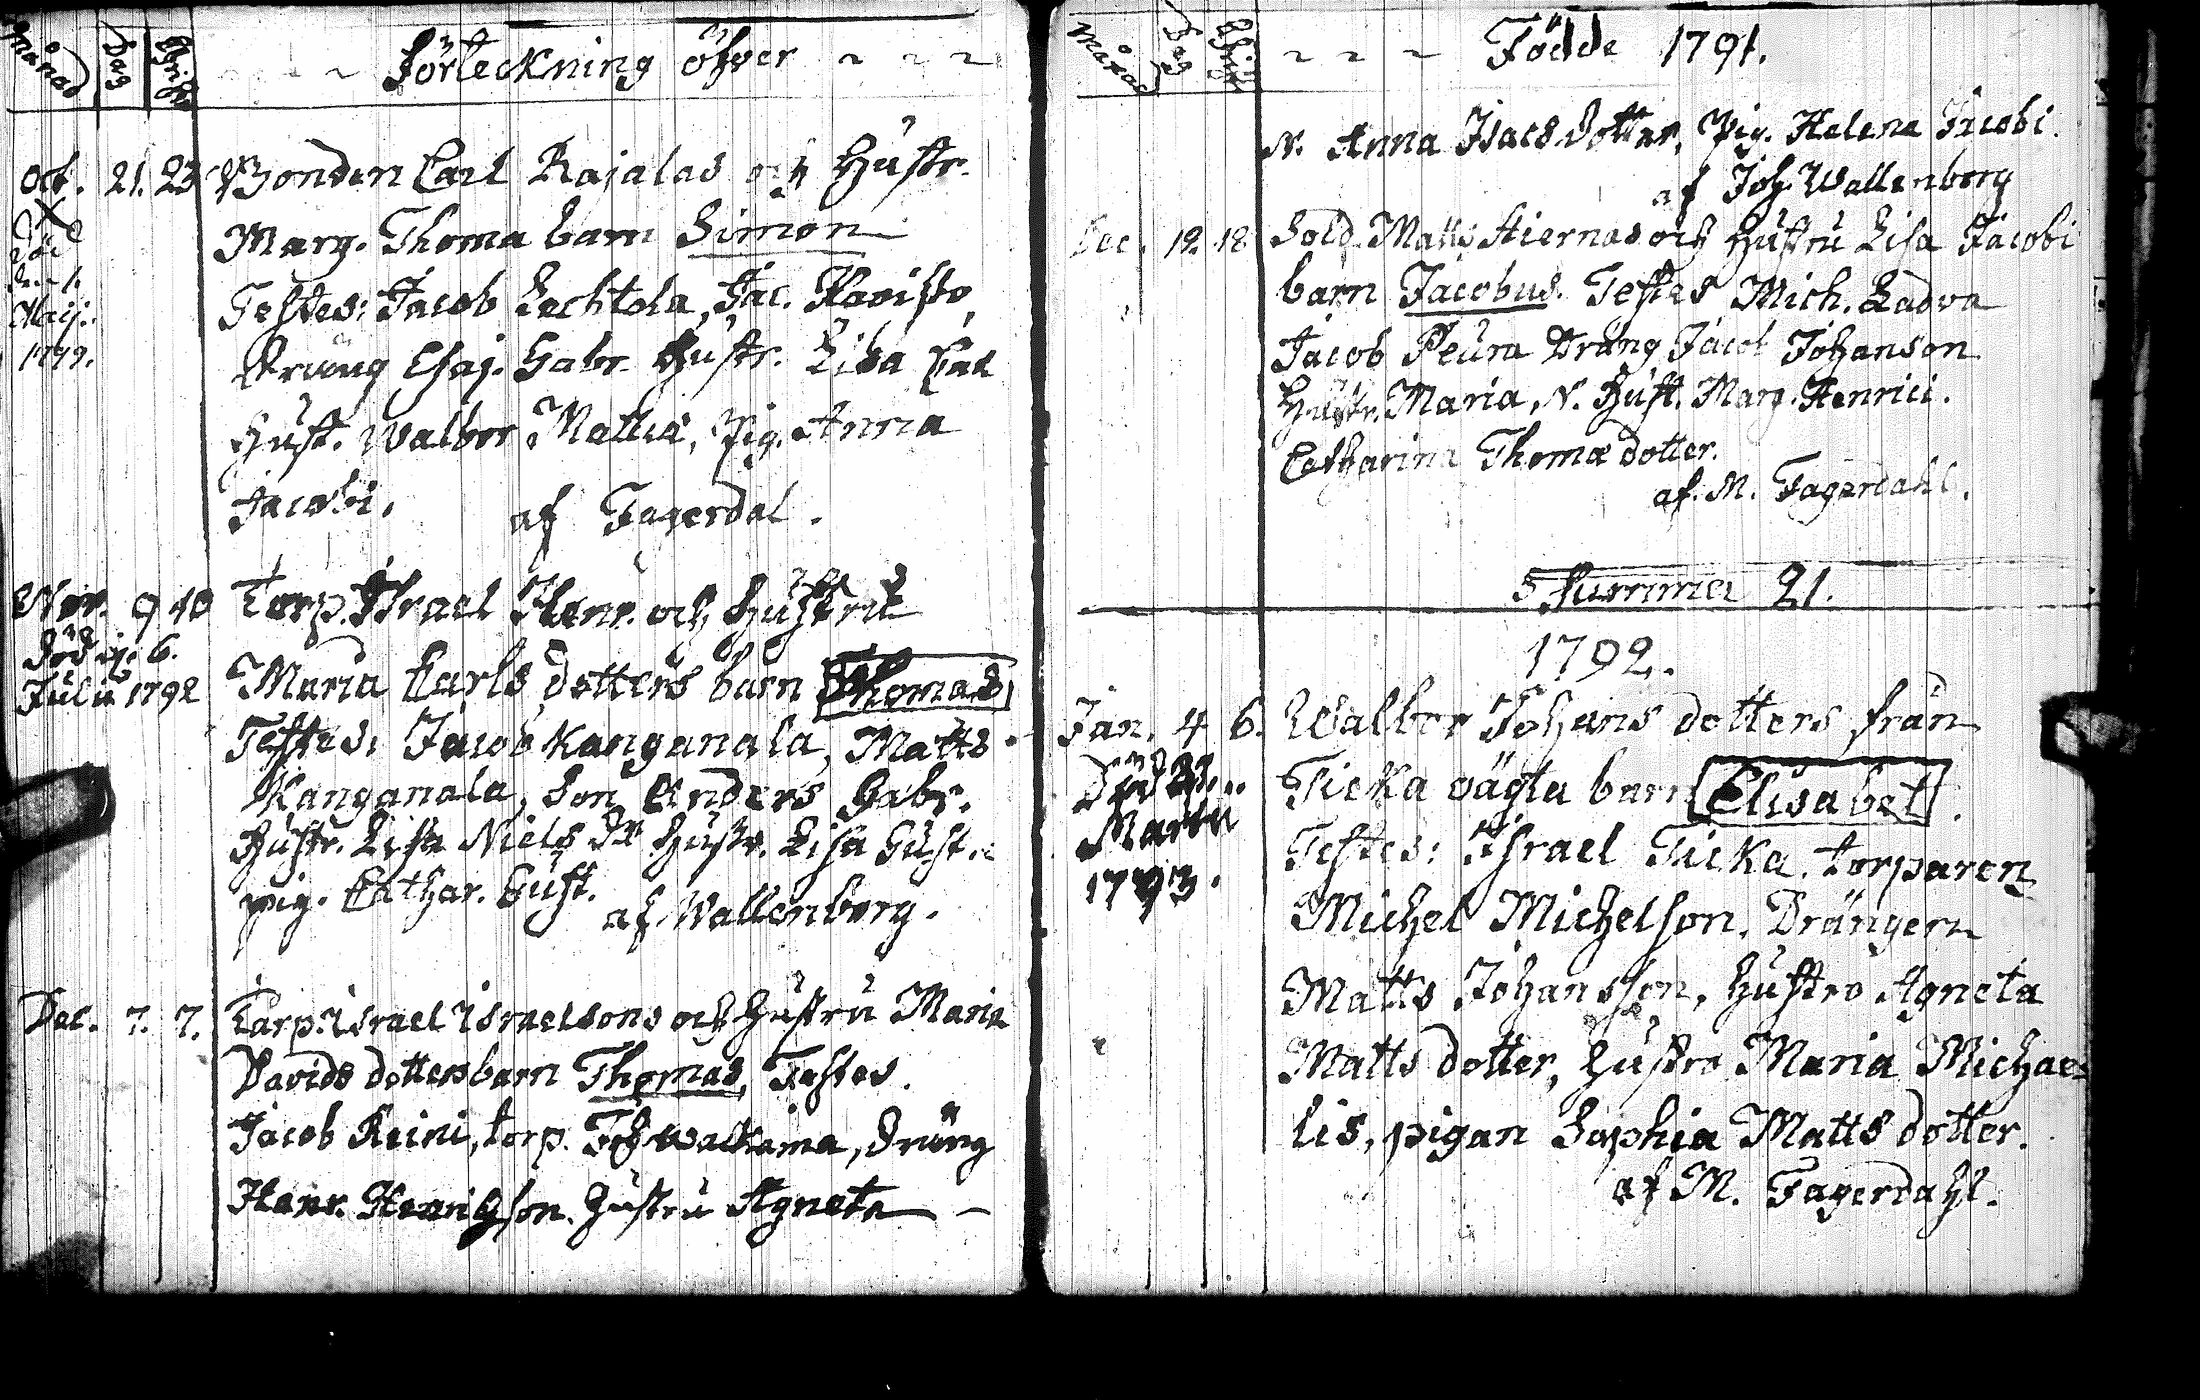 Månad Dag Christ. Förteckning öfver
Oct. 21. 23 Bonden Carl Rajalas och Hustr.
Marg. Thomæ barn Simon
död
den 1.
Maij.
Testes: Jacob Lechtola, Jac. Kovisto,
Dräng Esaj. Gabr. Hustr. Lisa Carl
Hust. Walbor Mattis, Pig. Anna
Jacobi. af Fagerdal.
Nov. 9 10 Torp. Israel Henr. och Hustru
död 6.
Julii 1792
Maria Carls dotters barn Thomas
Testes: Jacob Kanganala, Matts
Kanganala, Son Anders Gabr.
Hustr. Lisa Niels Dr Hustr. Lisa Gust.
pig. Cathar. Gust. af Wallenborg.
Dec. 7. 7. Torp. Israel Israelsons och Hustru Maria
Davids dotters barn Thomas, Testes.
Jacob Reini, torp. Joh Walkama, Dräng
Henr. Henrichson. Hustru Agneta
Månad Dag Christ. Födde 1791.
N. Anna Isacs dotter, Pig. Helena Jacobi.
af Joh. Wallenborg
Dec. 12. 18 Sold. Matts Stiernas och Hustru Lisa Jacobi
barn Jacobus. Testes Mich. Ladva
Jacob Peura Dräng Jacob Johanson
Hustr. Maria, N. Hust. Marg. Henrici.
Catharina Thomæ dotter.
af. M. Fagerdahl.
Summa 21.
1792.
Jan. 4 6. Walbor Johans dotters från
Ticka oägta barn Elisabet.
Död
Martii
1793.
Testes: Israel Ticka. torparen
Michel Michelson. Drängen
Matts Johansson, Hustro Agneta
Matts dotter, Hustro Maria Michae-
lis, pigan Sophia Matts dotter.
af M. Fagerdahl.